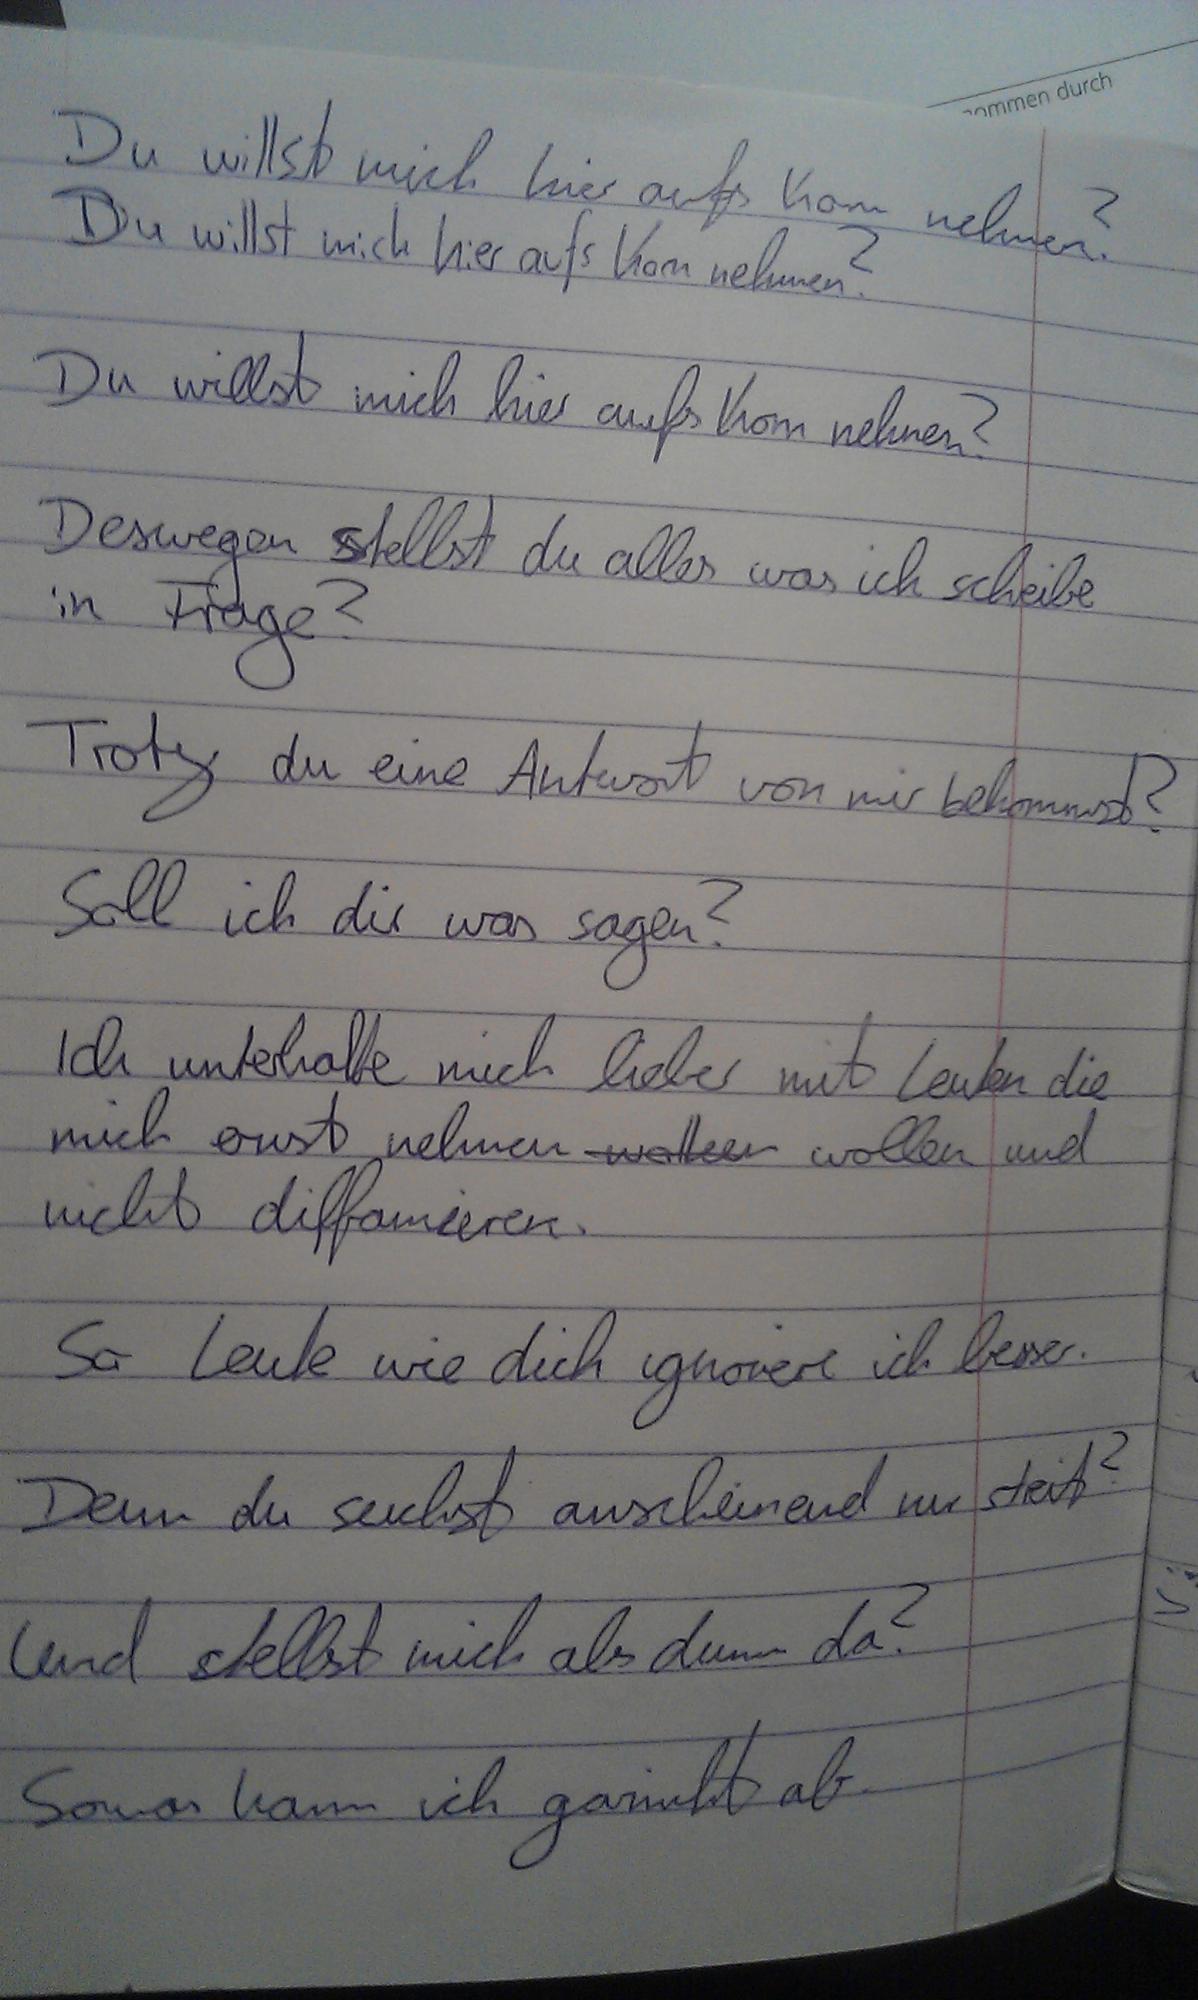 nommen durch
Du willst mich hier aufs Korn nehmen?
Du willst mich hier aufs Korn nehmen?
Du willst mich hier aufs Korn nehmen?
Deswegen stellst du alles was ich scheibe
in Frage?
Trotz du eine Antwort von mir bekommst?
Soll ich dir was sagen?
Ich unterhalte mich lieber mit Leuten die
mich ernst nehmen wollen wollen und
nicht diffamieren.
So Leute wie dich ignoriere ich besser.
Denn du suchst anscheinend nur streit?
Und stellst mich als dumm da?
Sowas kann ich garnicht ab.